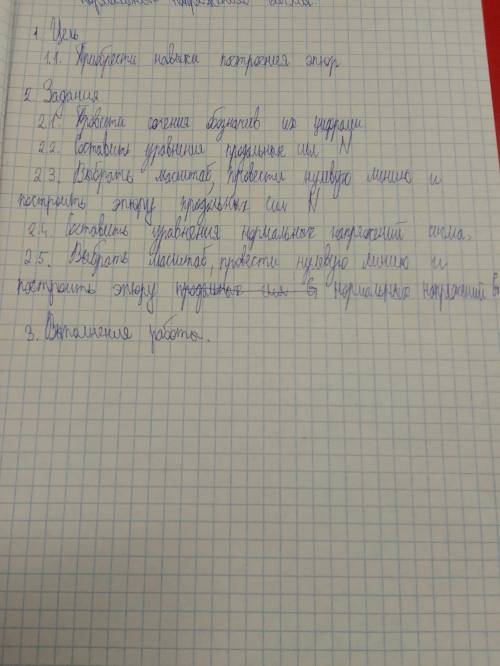 нормальных напряжений сигма
1. Цель
1.1. Приобрести навыки построения эпюр
2 Задания
2.1 Провести сечения обозначив их цифрами
2.2. Составить уравнения продольных сил N
2.3. Выбрать масштаб, провести нулевую линию и
построить эпюру продольных сил N
2.4. Составить уравнения нормальных напряжений сигма.
2.5. Выбрать масштаб, провести нулевую линию и
построить эпюру продольных сил б нормальных напряжений б
3. Выполнения работы.